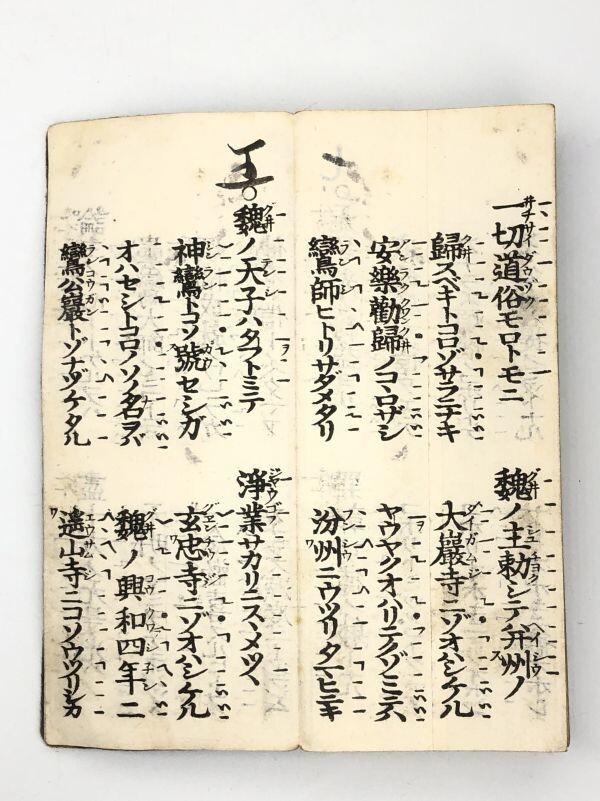 一切道俗モロトモニ
歸スベキトコロゾサラニナキ
安樂勸歸ノコヽロザシ
鸞師ヒトリサダメタリ
魏ノ主勅シテ并州ノ
大巖寺ニゾオハシケル
ヤウヤクオハリニノゾミテハ
汾州ニウツリタマヒニキ
魏ノ天子ハタフトミテ
神鸞トコソ號セシガ
オハセシトコロノソノ名ヲバ
鸞公巖トゾナヅケタル
淨業サカリニスヽメツヽ
玄忠寺ニゾオハシケル
魏ノ興和四年ニ
遙山寺ニコソウツリシカ